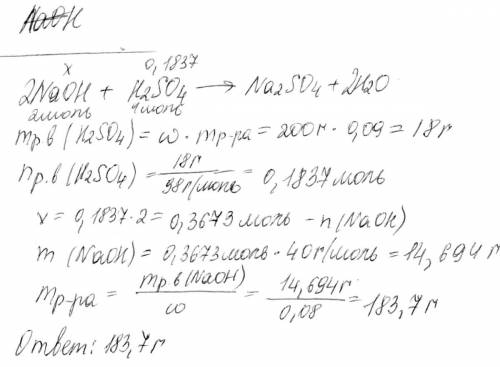 NaOH
x 0,1837
2NaOH + H2SO4 → Na2SO4 + 2H2O
2моль 1моль
mр.в (H2SO4) = ω · mр-ра = 200г · 0,09 = 18г
nр.в (H2SO4) = 18г / 98г/моль = 0,1837моль
x = 0,1837·2 = 0,3673 моль - n(NaOH)
m (NaOH) = 0,3673моль · 40г/моль = 14,694г
mр-ра = mр.в (NaOH) / ω = 14,694г / 0,08 = 183,7г
Ответ: 183,7г